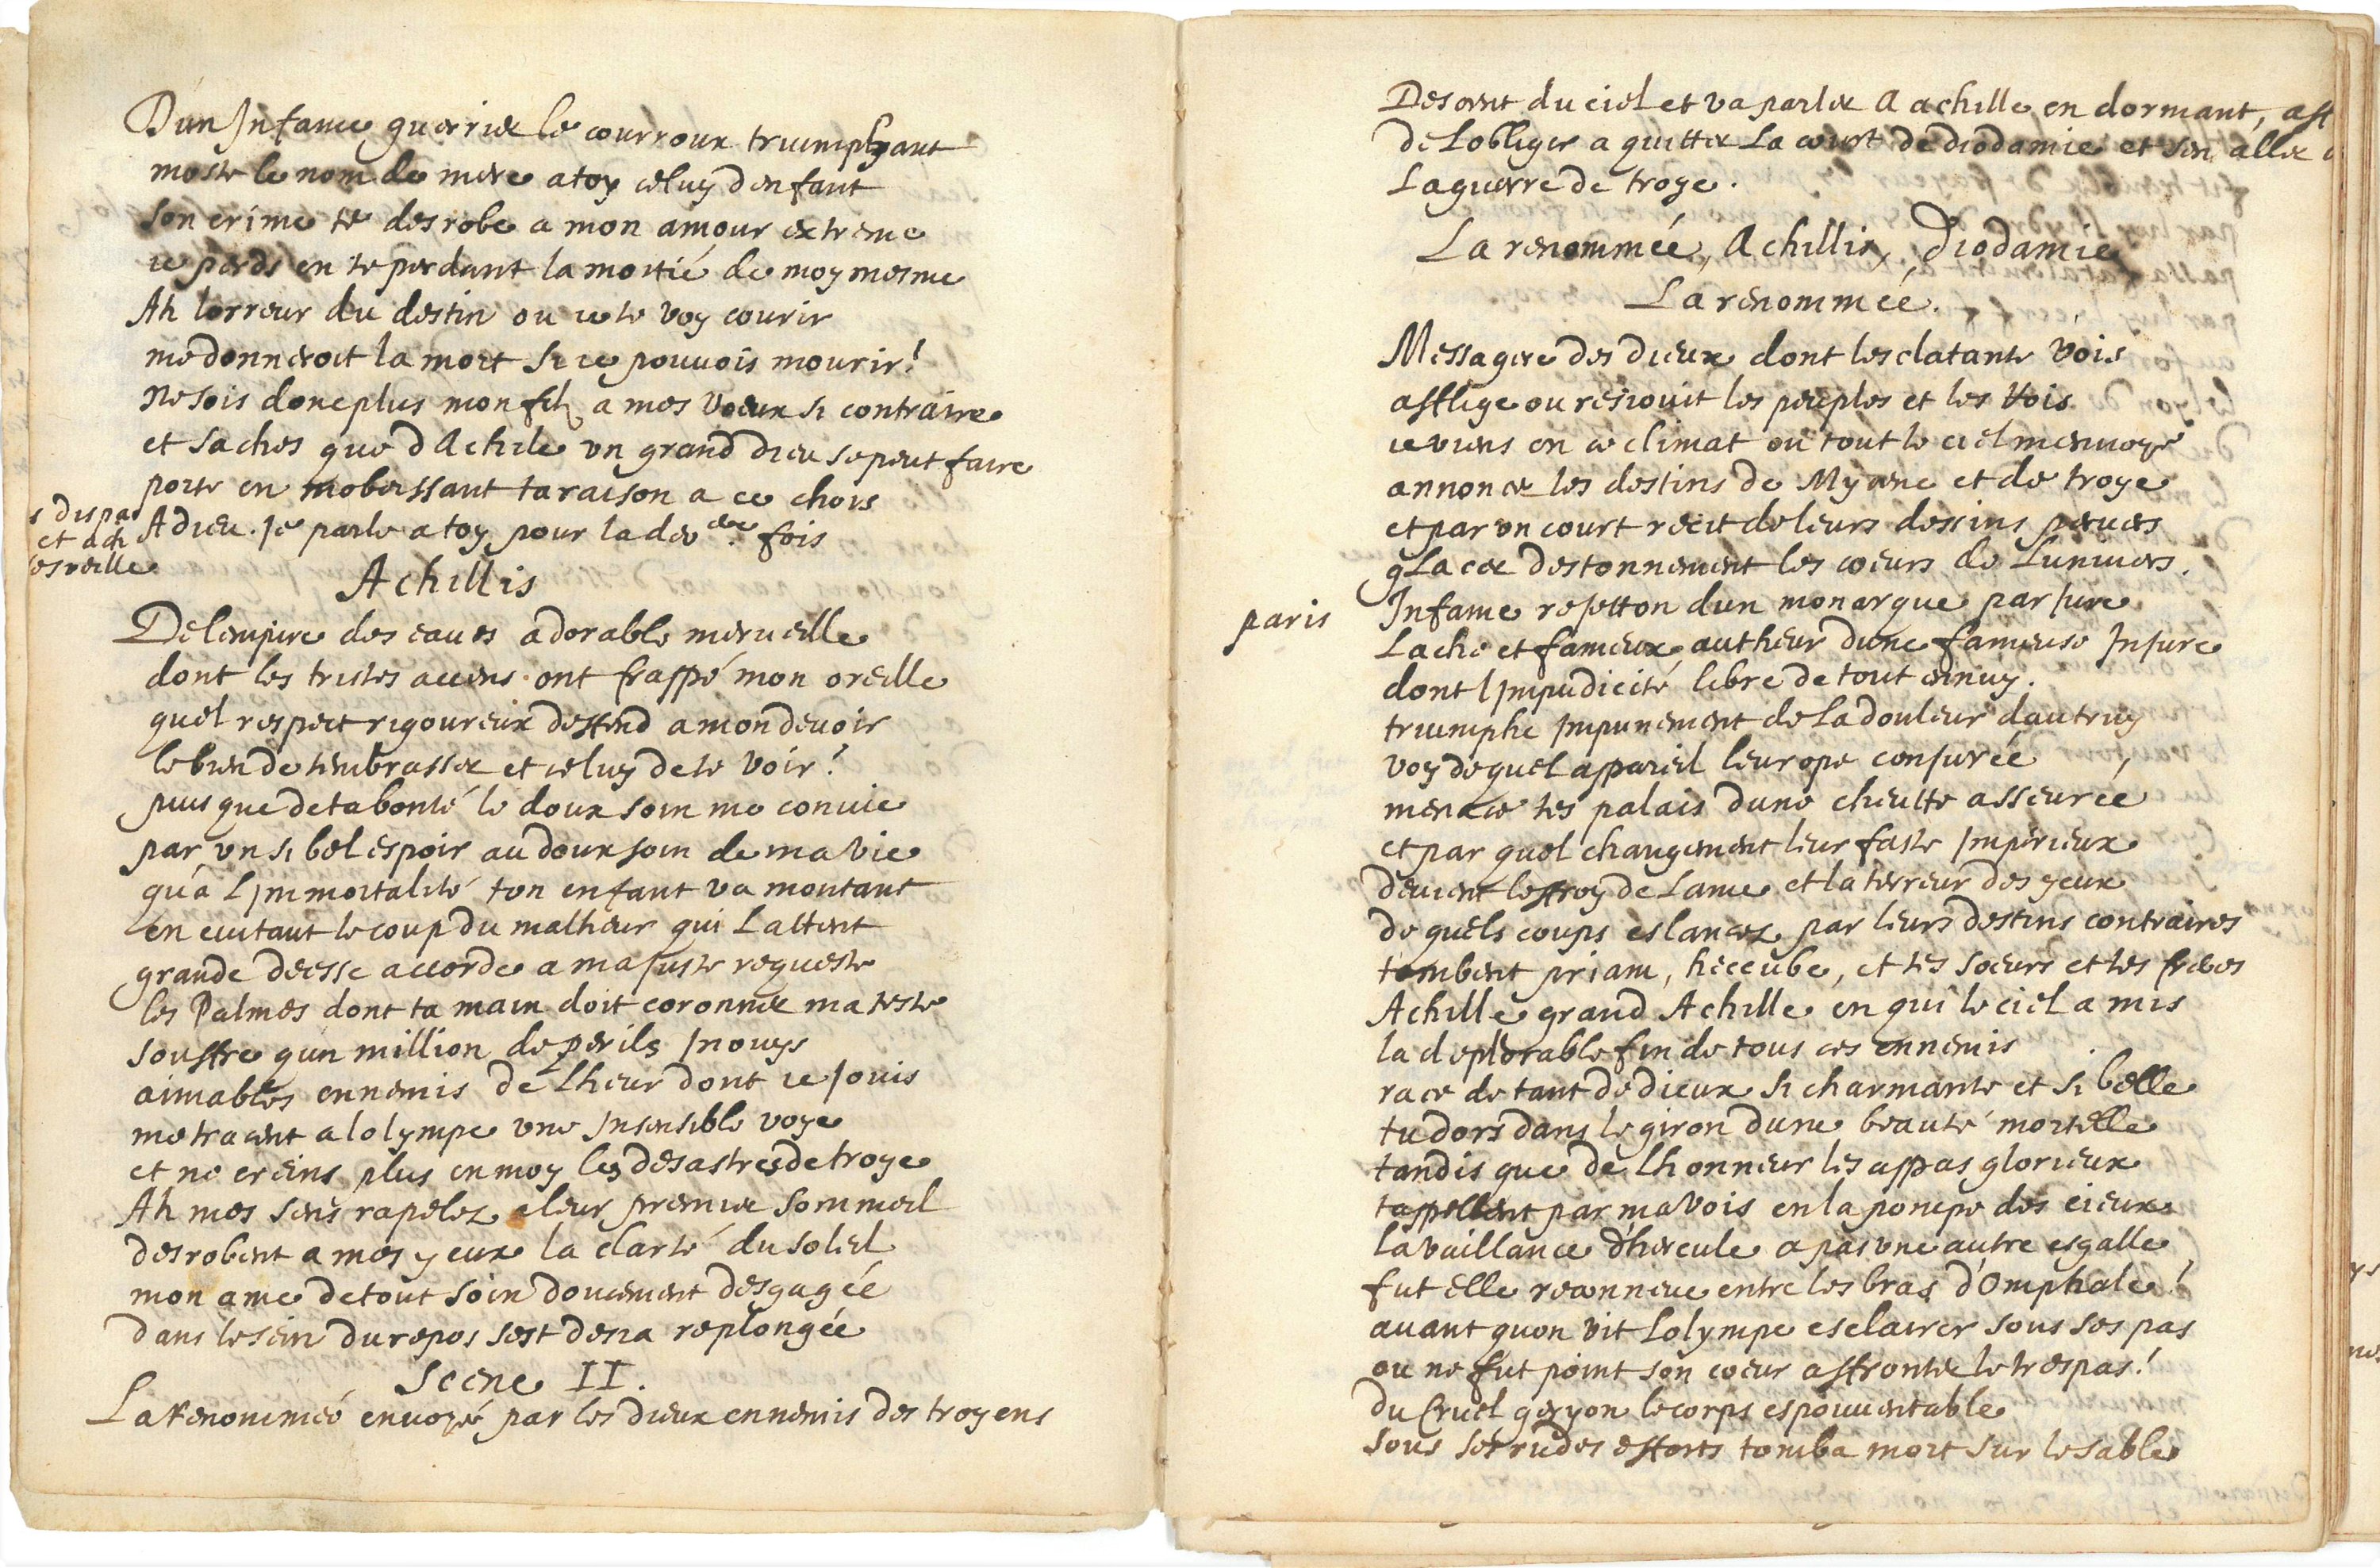 D'un Infame guerrier le courroux triumphant
moste le nom de mere a toy celuy denfant
Son crime te desrobe a mon amour extreme
ie perds en te perdant la moitié de moy mesme
Ah lerreur du destin ou ie te voy courir
me donneroit la mort si ie pouvois mourir!
Ne sois donc plus mon filz a mes voeux si contraire
et saches que d Achile un grand dieu se peut faire
porte en mobeissant ta raison a ce chois
s dispa
et ach
sesveille
Adieu. Je parle a toy pour la der ere. fois
Achillis
De lempire des eaues adorable merveille
dont les tristes accens ont frappé mon oreille
quel respect rigoureux deffend a mon devoir
le bien de tembrasser et celuy de te voir?
puis que de ta bonté le doux soin me convie
par un si bel espoir au doux soin de ma vie
qu'a L Immortalité ton enfant va montant
en evitant le coup du malheur qui Lattent
grande deesse accorde a ma juste requeste
les Palmes dont ta main doit coronner ma teste
souffre qun million de perils Inouys
aimables ennemis de Lheur dont ie Jouis
me tracent a lolympe une Insensible voye
et ne creins plus en moy les desastres de troye
Ah mes sens rapelez a leur premier sommeil
desrobent a mes yeux la clarté du soleil
mon ame de tout soin doucement desgagée
dans le sein du repos sest desia replongée
Scene II.
La renommeé envoyé par les dieux ennemis des troyens
Descent du ciel et va parler a achille en dormant, aff
de Lobliger a quitter La court de diodamie et sen aller
La guerre de troye.
La renommeé, Achillis, Diodamie
La renommeé.
Messagere des dieux dont lesclatante vois
afflige ou resiouit les peuples et les Rois
ie viens en ce climat ou tout le ciel menvoye
annoncer les destins de Mycene et de troye
et par un court recit de leurs dessins pervers
glacer destonnement les coeurs de Lunivers.
paris
Infame rejetton dun monarque parjure
Lache et fameux autheur dune fameuse Injure
dont l Impudicité libre de tout ennuy.
triumphe Impunement de La douleur dautruy
voy de quel appareil leurope conjurée
menace tes palais dune cheutte asseurée
et par quel changement leur faste Imperieux
devient leffroy de Lame et la terreur des yeux
de quels coups eslancez par leurs destins contraires
tombent priam, heccube, et tes soeurs et tes freres
Achille grand Achille en qui le ciel a mis
la deplorable fin de tous ces ennemis
race de tant de dieux si charmante et si belle
tu dors dans le giron dune beauté mortelle
tandis que de Lhonneur les appas glorieux
tappellent par ma vois en la pompe des cieux
La vaillance d'hercule a pas une autre esgalle
fut elle reconneue entre les bras d'Omphale?
avant quon vit Lolympe esclairer sous ses pas
ou ne fut point son coeur affronter le trespas!
du Cruel geryon le corps espouventable
sous ses rudes efforts tomba mort sur le sable